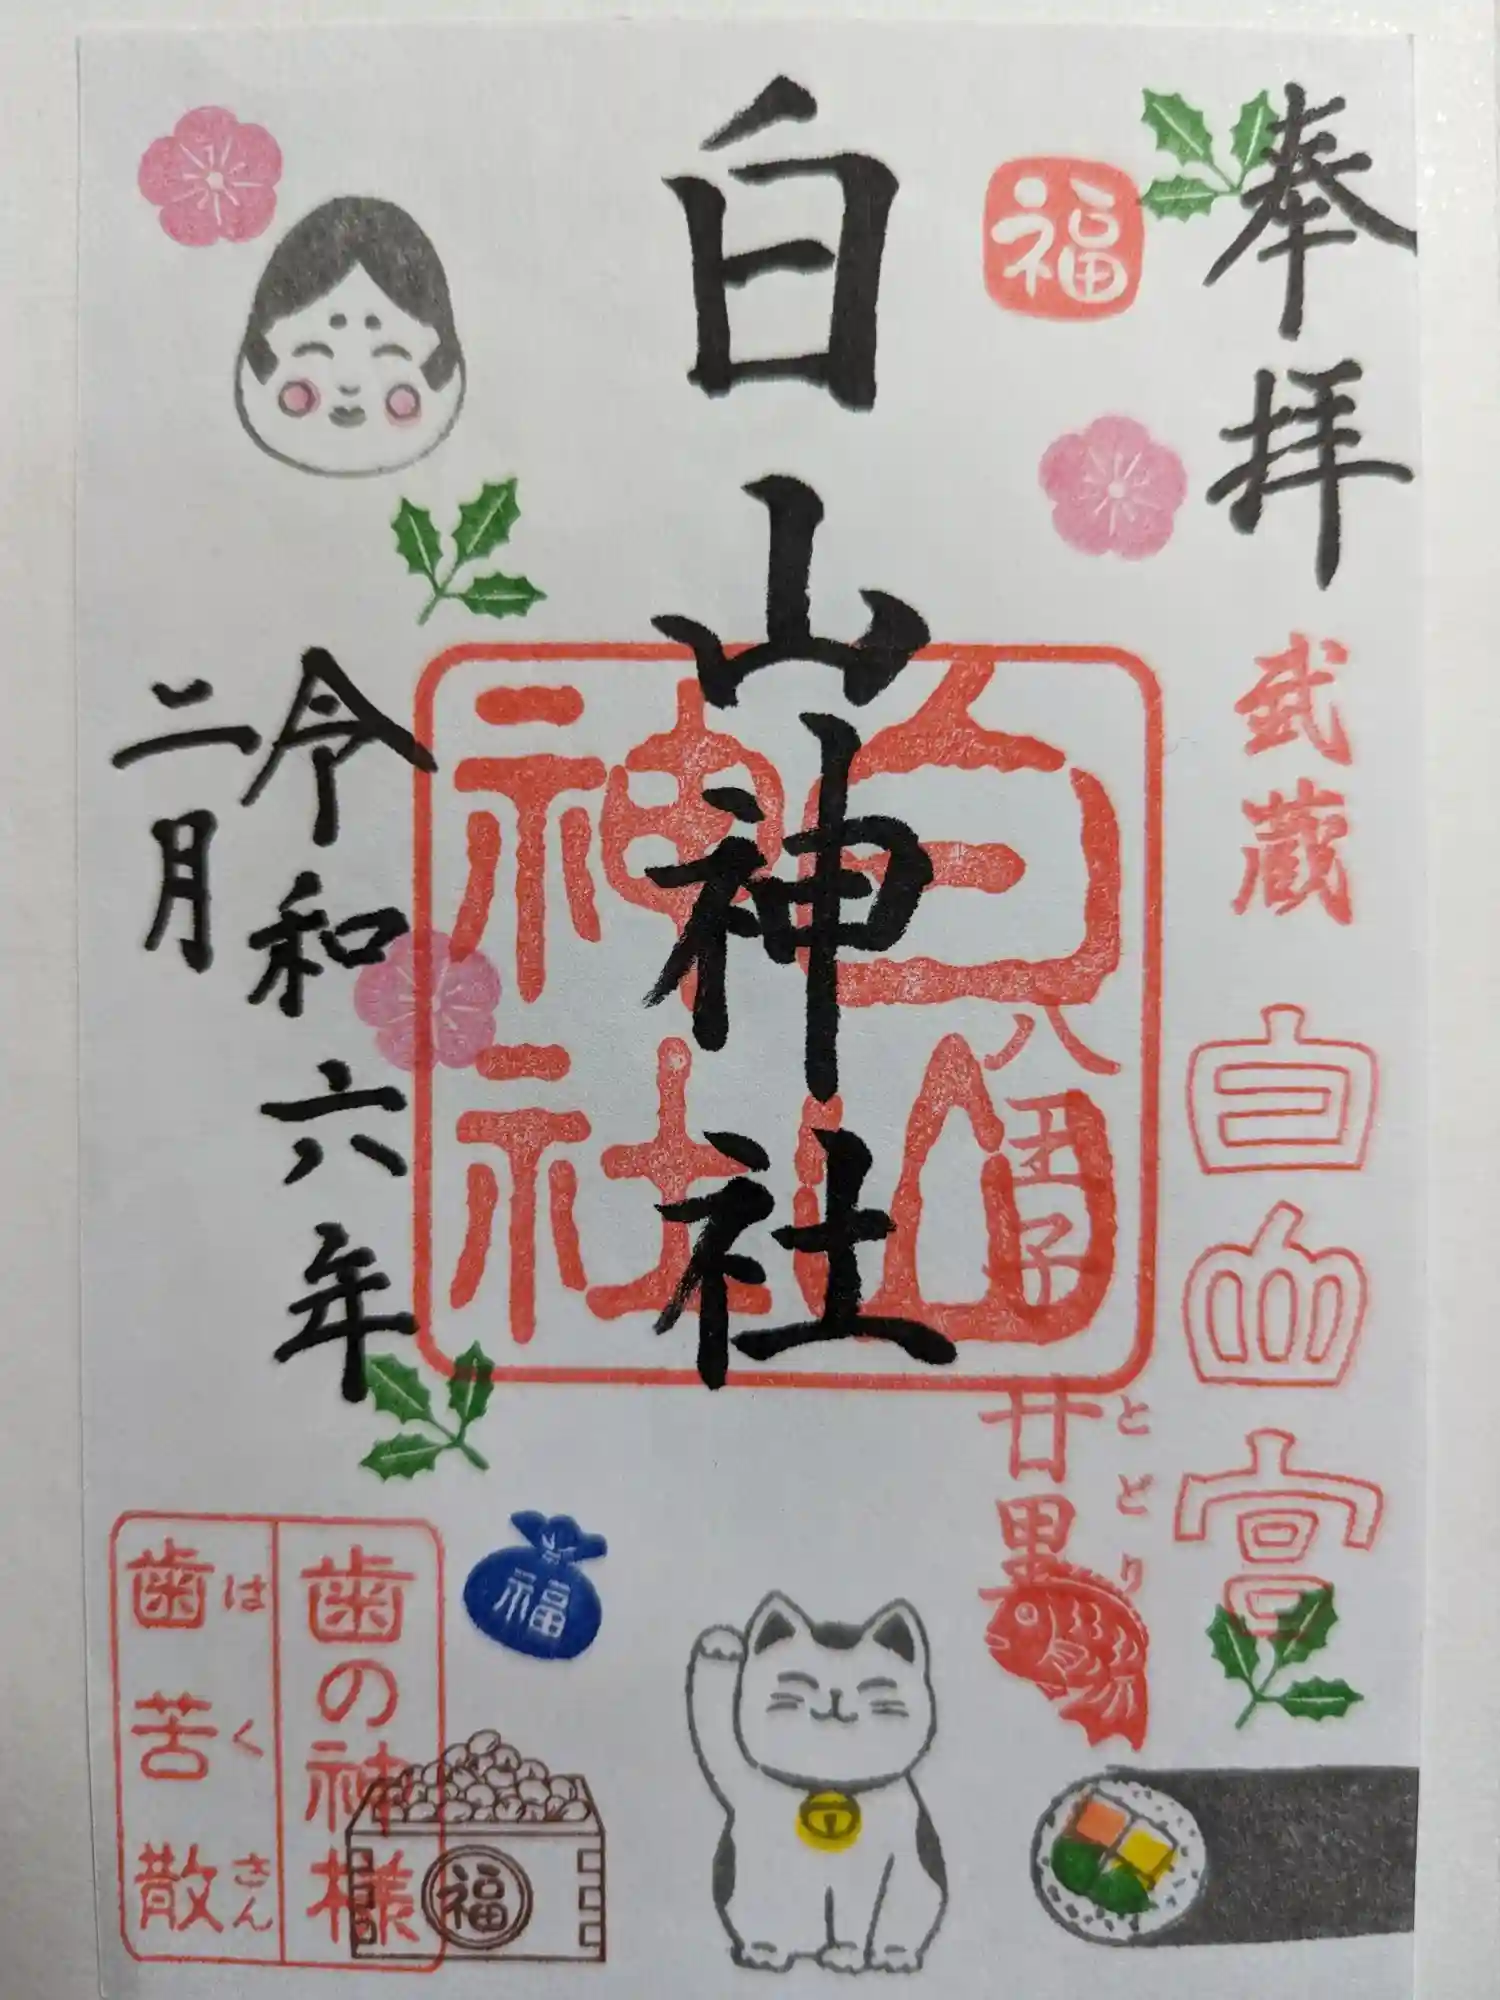 奉拝
福
武蔵
白山宮
八王子
廿里
とどり
白山神社
白山
神社
令和六年
二月
歯の神様
歯苦散
はくさん
福
福